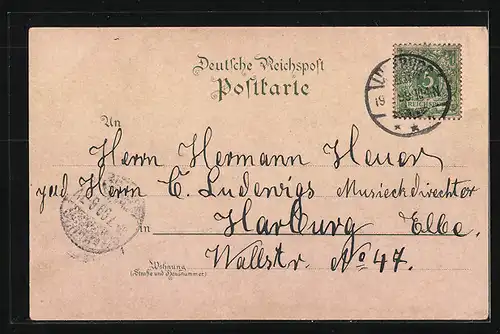 Deutsche Reichspost
Postkarte
5
REICHSPOST
An
Herrn Hermann Heuer
p. ad. Herrn C. Ludewigs Musieckdirechter
in Harburg Elbe.
Wallstr. No 47.
Wohnung
(Straße und Hausnummer)